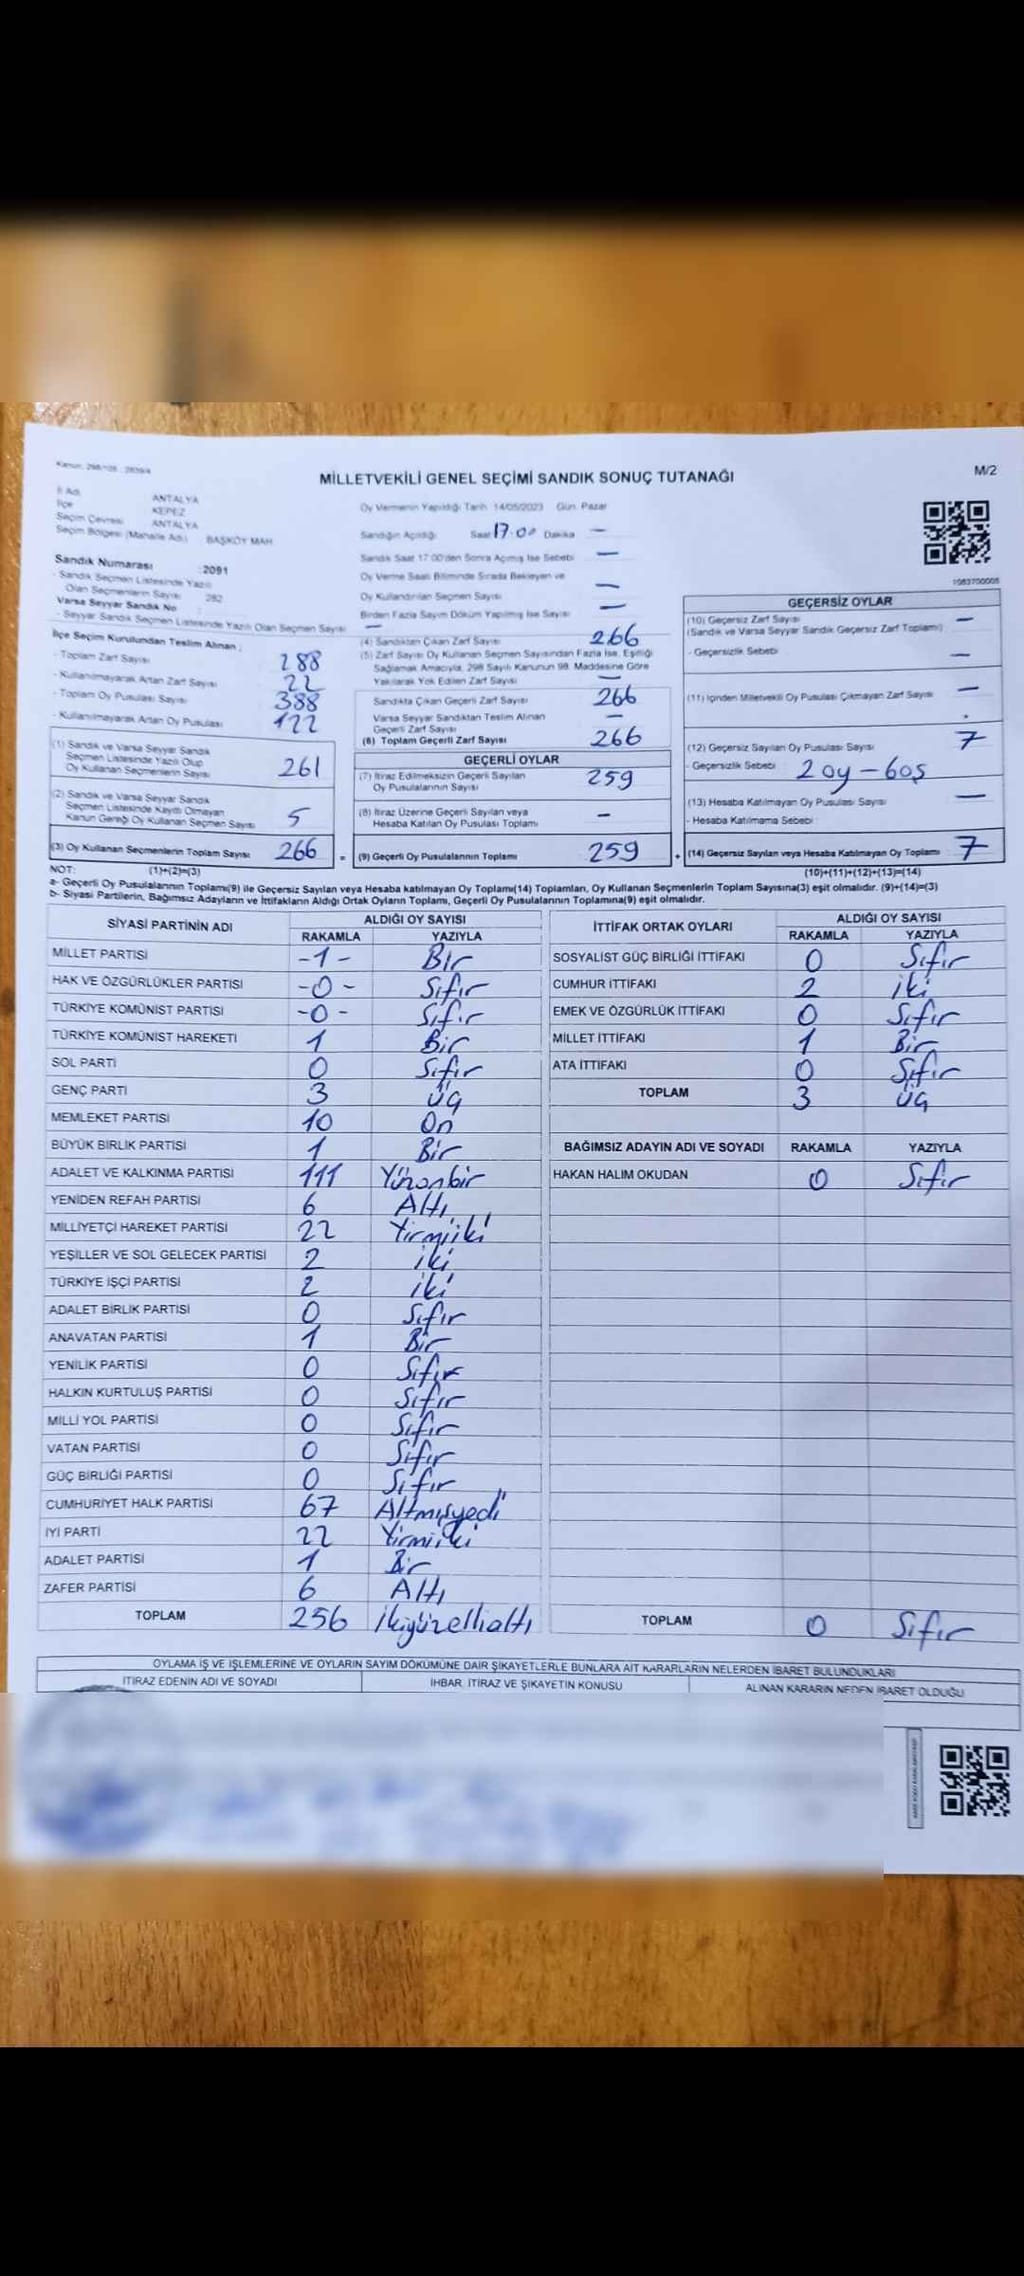 Kanun: 298/105 - 2839/4
MİLLETVEKİLİ GENEL SEÇİMİ SANDIK SONUÇ TUTANAĞI
M/2
İl Adı ANTALYA
İlçe KEPEZ
Seçim Çevresi ANTALYA
Seçim Bölgesi (Mahalle Adı) BAŞKÖY MAH.
Sandık Numarası : 2091
- Sandık Seçmen Listesinde Yazılı
Olan Seçmenlerin Sayısı 282
Varsa Seyyar Sandık No :
- Seyyar Sandık Seçmen Listesinde Yazılı Olan Seçmen Sayısı —
İlçe Seçim Kurulundan Teslim Alınan ;
- Toplam Zarf Sayısı 288
- Kullanılmayarak Artan Zarf Sayısı 22
- Toplam Oy Pusulası Sayısı 388
- Kullanılmayarak Artan Oy Pusulası 122
(1) Sandık ve Varsa Seyyar Sandık
Seçmen Listesinde Yazılı Olup
Oy Kullanan Seçmenlerin Sayısı 261
(2) Sandık ve Varsa Seyyar Sandık
Seçmen Listesinde Kayıtlı Olmayan
Kanun Gereği Oy Kullanan Seçmen Sayısı 5
(3) Oy Kullanan Seçmenlerin Toplam Sayısı 266 =
Oy Vermenin Yapıldığı Tarih 14/05/2023 Gün Pazar
Sandığın Açıldığı Saat 17.00 Dakika —
Sandık Saat 17:00'den Sonra Açılmış İse Sebebi —
Oy Verme Saati Bitiminde Sırada Bekleyen ve
Oy Kullandırılan Seçmen Sayısı —
Birden Fazla Sayım Döküm Yapılmış İse Sayısı —
(4) Sandıktan Çıkan Zarf Sayısı 266
(5) Zarf Sayısı Oy Kullanan Seçmen Sayısından Fazla İse, Eşitliği
Sağlamak Amacıyla, 298 Sayılı Kanunun 98. Maddesine Göre
Yakılarak Yok Edilen Zarf Sayısı —
Sandıkta Çıkan Geçerli Zarf Sayısı 266
Varsa Seyyar Sandıktan Teslim Alınan
Geçerli Zarf Sayısı —
(6) Toplam Geçerli Zarf Sayısı 266
GEÇERLİ OYLAR
(7) İtiraz Edilmeksizin Geçerli Sayılan
Oy Pusulalarının Sayısı 259
(8) İtiraz Üzerine Geçerli Sayılan veya
Hesaba Katılan Oy Pusulası Toplamı —
(9) Geçerli Oy Pusulalarının Toplamı 259 +
1083700005
GEÇERSİZ OYLAR
(10) Geçersiz Zarf Sayısı
(Sandık ve Varsa Seyyar Sandık Geçersiz Zarf Toplamı) —
- Geçersizlik Sebebi —
(11) İçinden Milletvekili Oy Pusulası Çıkmayan Zarf Sayısı —
(12) Geçersiz Sayılan Oy Pusulası Sayısı 7
- Geçersizlik Sebebi 2 oy - boş
(13) Hesaba Katılmayan Oy Pusulası Sayısı —
- Hesaba Katılmama Sebebi :
(14) Geçersiz Sayılan veya Hesaba Katılmayan Oy Toplamı 7
NOT: (1)+(2)=(3) (10)+(11)+(12)+(13)=(14)
a- Geçerli Oy Pusulalarının Toplamı(9) ile Geçersiz Sayılan veya Hesaba katılmayan Oy Toplamı(14) Toplamları, Oy Kullanan Seçmenlerin Toplam Sayısına(3) eşit olmalıdır. (9)+(14)=(3)
b- Siyasi Partilerin, Bağımsız Adayların ve İttifakların Aldığı Ortak Oyların Toplamı, Geçerli Oy Pusulalarının Toplamına(9) eşit olmalıdır.
SİYASİ PARTİNİN ADI ALDIĞI OY SAYISI
RAKAMLA YAZIYLA
MİLLET PARTİSİ -1- Bir
HAK VE ÖZGÜRLÜKLER PARTİSİ -0- Sıfır
TÜRKİYE KOMÜNİST PARTİSİ -0- Sıfır
TÜRKİYE KOMÜNİST HAREKETİ 1 Bir
SOL PARTİ 0 Sıfır
GENÇ PARTİ 3 Üç
MEMLEKET PARTİSİ 10 On
BÜYÜK BİRLİK PARTİSİ 1 Bir
ADALET VE KALKINMA PARTİSİ 111 Yüzonbir
YENİDEN REFAH PARTİSİ 6 Altı
MİLLİYETÇİ HAREKET PARTİSİ 22 Yirmiiki
YEŞİLLER VE SOL GELECEK PARTİSİ 2 iki
TÜRKİYE İŞÇİ PARTİSİ 2 iki
ADALET BİRLİK PARTİSİ 0 Sıfır
ANAVATAN PARTİSİ 1 Bir
YENİLİK PARTİSİ 0 Sıfır
HALKIN KURTULUŞ PARTİSİ 0 Sıfır
MİLLİ YOL PARTİSİ 0 Sıfır
VATAN PARTİSİ 0 Sıfır
GÜÇ BİRLİĞİ PARTİSİ 0 Sıfır
CUMHURİYET HALK PARTİSİ 67 Altmışyedi
İYİ PARTİ 22 Yirmiiki
ADALET PARTİSİ 1 Bir
ZAFER PARTİSİ 6 Altı
TOPLAM 256 İkiyüzellialtı
İTTİFAK ORTAK OYLARI ALDIĞI OY SAYISI
RAKAMLA YAZIYLA
SOSYALİST GÜÇ BİRLİĞİ İTTİFAKI 0 Sıfır
CUMHUR İTTİFAKI 2 iki
EMEK VE ÖZGÜRLÜK İTTİFAKI 0 Sıfır
MİLLET İTTİFAKI 1 Bir
ATA İTTİFAKI 0 Sıfır
TOPLAM 3 Üç
BAĞIMSIZ ADAYIN ADI VE SOYADI RAKAMLA YAZIYLA
HAKAN HALIM OKUDAN 0 Sıfır
TOPLAM 0 Sıfır
OYLAMA İŞ VE İŞLEMLERİNE VE OYLARIN SAYIM DÖKÜMÜNE DAİR ŞİKAYETLERLE BUNLARA AİT KARARLARIN NELERDEN İBARET BULUNDUKLARI
İTİRAZ EDENİN ADI VE SOYADI İHBAR, İTİRAZ VE ŞİKAYETİN KONUSU ALINAN KARARIN NEDEN İBARET OLDUĞU